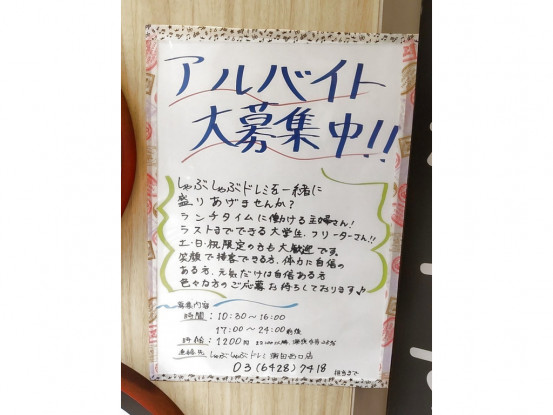 アルバイト
大募集中!!
しゃぶしゃぶドレミを一緒に
盛りあげませんか?
ランチタイムに働ける主婦さん!
ラストまでできる大学生、フリーターさん!!
土・日・祝限定の方も大歓迎です。
笑顔で接客できる方、体力に自信の
ある方、元気だけは自信ある方
色々な方のご応募お待ちしております♪
募集内容
時間:10:30〜16:00
17:00〜24:00前後
時給:1200円
連絡先 しゃぶしゃぶドレミ蒲田西口店
03(6428)7418 担当まで